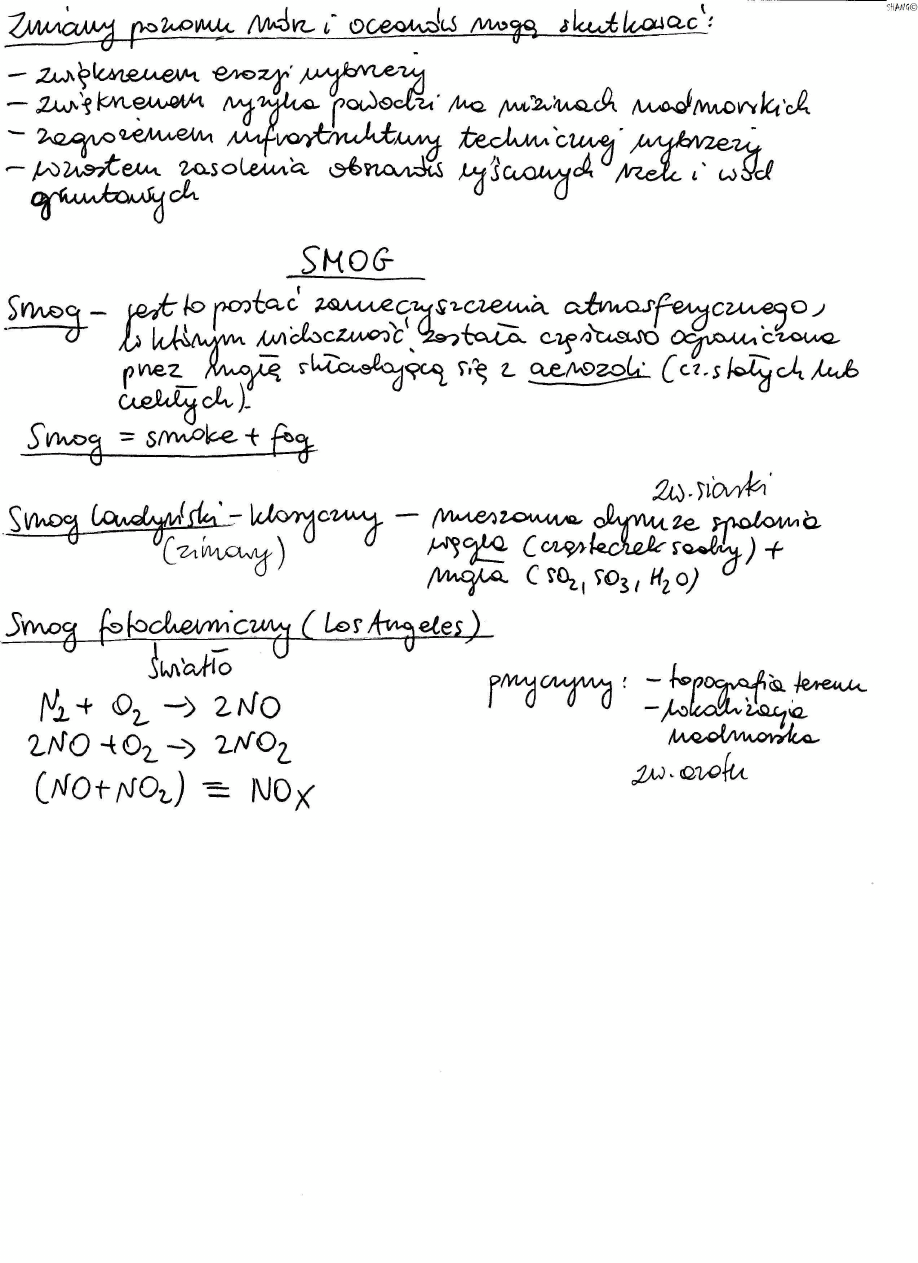 SHANG©
Zmiany poziomu mórz i oceanów mogą skutkować:
- zwiększeniem erozji wybrzeży
- zwiększeniem ryzyka powodzi na nizinach nadmorskich
- zagrożeniem infrastruktury technicznej wybrzeży
- wzrostem zasolenia obszarów ujściowych rzek i wód
gruntowych
SMOG
Smog - jest to postać zanieczyszczenia atmosferycznego,
w którym widoczność została częściowo ograniczona
przez mgłę składającą się z aerozoli (cz. stałych lub
ciekłych).
Smog = smoke + fog
zw. siarki
Smog Londyński - klasyczny - mieszanina dymu ze spalania
(zimowy) węgla (cząsteczek sadzy) +
mgła (SO2, SO3, H2O)
Smog fotochemiczny (Los Angeles)
światło
przyczyny: - topografia terenu
- lokalizacja
nadmorska
zw. azotu
N2 + O2 → 2NO
2NO + O2 → 2NO2
(NO + NO2) ≡ NOx